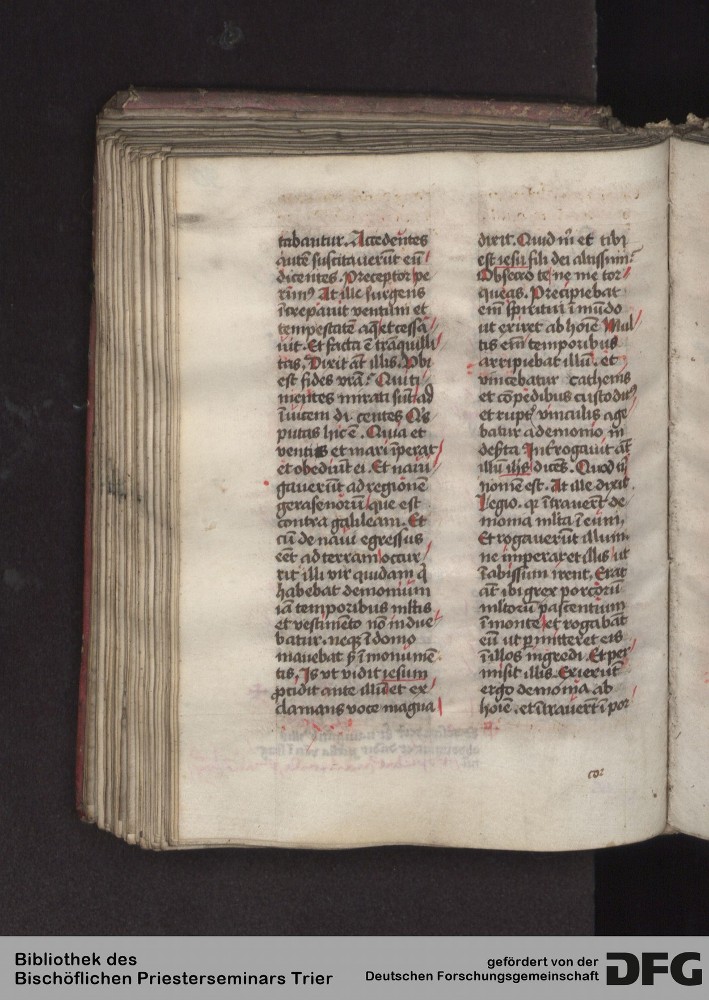 tabantur. Accedentes
aute͂ suscitaverūt eū
dicentes. Preceptor pe
rimꝰ At ille surgens
īcrepavit ventūm et
tempestatē aq̄ et cessa
uit. Et facta ē tranquilli
tas. Dixit āt illis. Vbi
est fides vrā. Qui ti
mentes mirati sūt ad
īuicem di centes Qͥs
putas hic ē. Quia et
ventis et mari īperat
et obediūt ei. Et naui
gaverūt ad regionē
gerasenorū que est
contra galileam. Et
cū de naui egressus
eēt ad terram occur
rit illi vir quidam q̄
habebat demonium
iā temporibus mltis
et vestimēto nō indue
batur. neqꝫ ī domo
manebat s̄ in monumē
tis. Is vt vidit iesum
ꝓcidit ante illū et ex
clamans voce magna
dixit. Quid m̄ et tibi
est iesu fili dei altissim̄
Obsecro te ne me tor
queas. Precipiebat
em̄ spiritui īmūdo
ut exiret ab hoīe Mul
tis em̄ temporibus
arripiebat illū. et
vinciebatur cathenis
et cōpedibus custoditꝰ
et ruptꝭ vinculis age
batur a demonio in
deserta Introgauit āt
illū ihs dicēs. Quod t̄
nomen est. At ille dixit
Legio. qꝛ ītrauerūt de
monia mlta ī eum.
Et rogauerūt illum
ne imperaret illis ut
ī abissum irent. Erat
āt ibi grex porcorū
mltorū pascentium
ī monte et rogabāt
eū ut ꝑmitteret eis
ī illos ingredi. Et per
misit illis. Exierūt
ergo demonia ab
hoīe. et ītrauerūt ī por
cos
Bibliothek des
Bischöflichen Priesterseminars Trier
gefördert von der
Deutschen Forschungsgemeinschaft
DFG